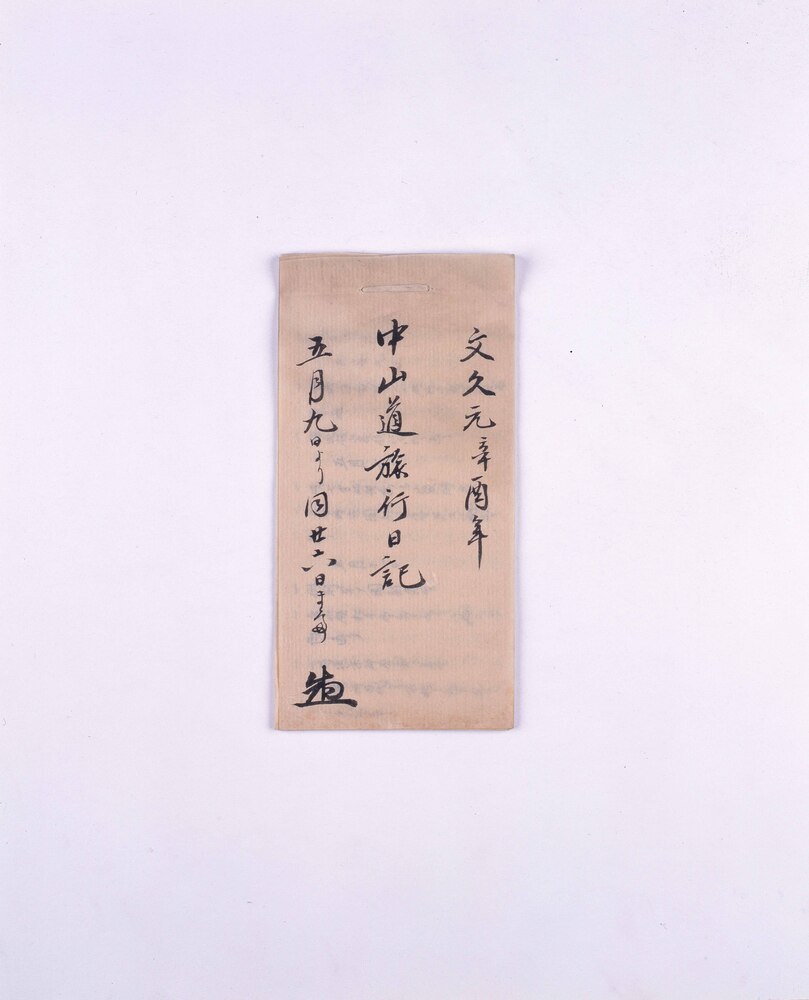 文久元辛酉年
中山道旅行日記
五月九日より同廿六日まて